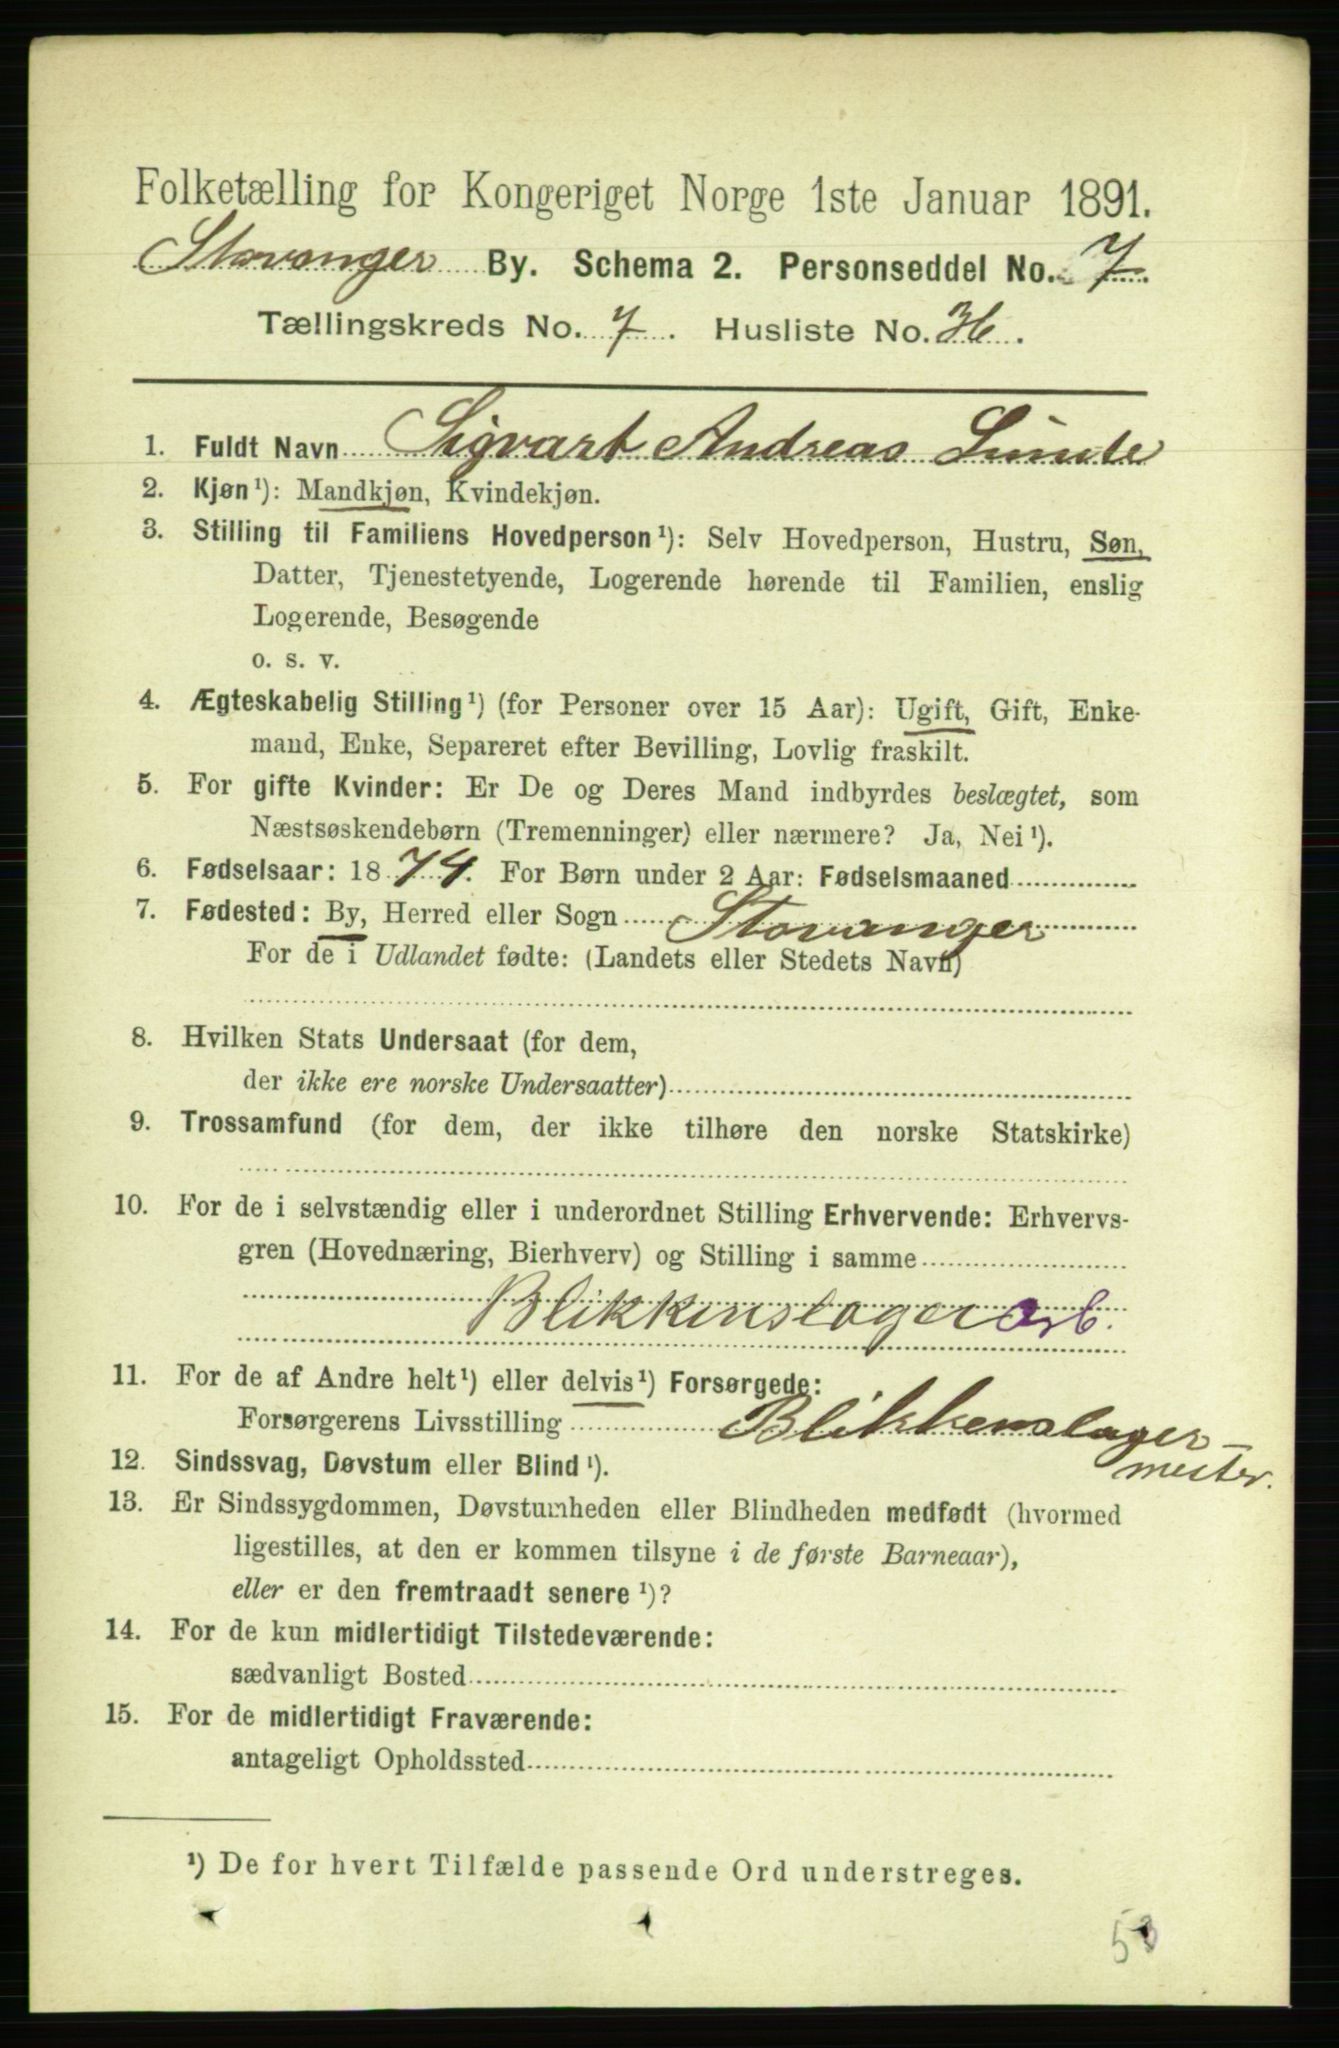 Folketælling for Kongeriget Norge 1ste Januar 1891.
Stavanger By. Schema 2. Personseddel No. 7.
Tællingskreds No. 7. Husliste No. 36.
1. Fuldt Navn Sigvart Andreas Lunde
2. Kjøn¹): Mandkjøn, Kvindekjøn.
3. Stilling til Familiens Hovedperson¹): Selv Hovedperson, Hustru, Søn,
Datter, Tjenestetyende, Logerende hørende til Familien, enslig
Logerende, Besøgende
o. s. v.
4. Ægteskabelig Stilling¹) (for Personer over 15 Aar): Ugift, Gift, Enke-
mand, Enke, Separeret efter Bevilling, Lovlig fraskilt.
5. For gifte Kvinder: Er De og Deres Mand indbyrdes beslægtet, som
Næstsøskendebørn (Tremenninger) eller nærmere? Ja, Nei¹).
6. Fødselsaar: 1874. For Børn under 2 Aar: Fødselsmaaned
7. Fødested: By, Herred eller Sogn Stavanger
For de i Udlandet fødte: (Landets eller Stedets Navn)
8. Hvilken Stats Undersaat (for dem,
der ikke ere norske Undersaatter)
9. Trossamfund (for dem, der ikke tilhøre den norske Statskirke)
10. For de i selvstændig eller i underordnet Stilling Erhvervende: Erhvervs-
gren (Hovednæring, Bierhverv) og Stilling i samme
Blikkenslagerarb.
11. For de af Andre helt¹) eller delvis¹) Forsørgede:
Forsørgerens Livsstilling Blikkenslager-
mester.
12. Sindssvag, Døvstum eller Blind¹).
13. Er Sindssygdommen, Døvstumheden eller Blindheden medfødt (hvormed
ligestilles, at den er kommen tilsyne i de første Barneaar),
eller er den fremtraadt senere¹)?
14. For de kun midlertidigt Tilstedeværende:
sædvanligt Bosted
15. For de midlertidigt Fraværende:
antageligt Opholdssted
¹) De for hvert Tilfælde passende Ord understreges.